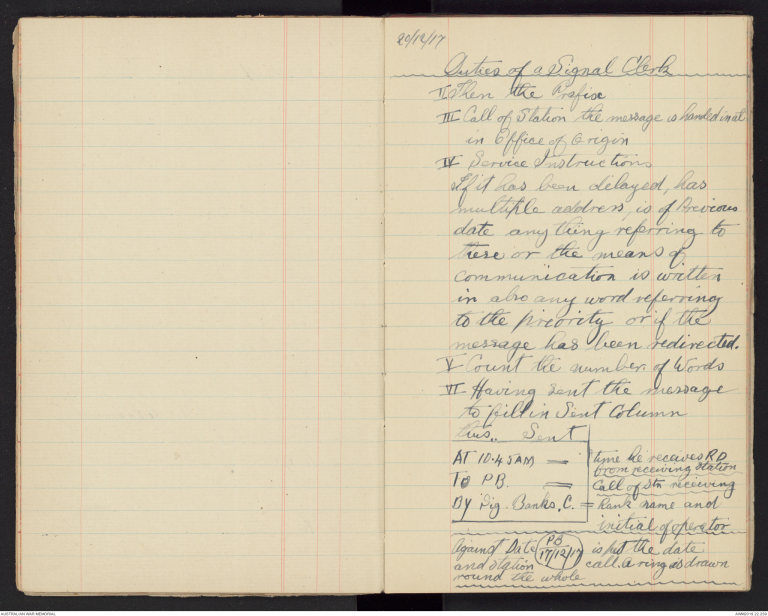 20/12/17
Duties of a Signal Clerk
II Then the Prefix
III Call of Station the message is handed in at
in Office of Origin
IV Service Instructions
If it has been delayed, has
multiple address, is of Previous
date any thing referring to
these or the means of
communication is written
in also any word referring
to the priority or if the
message has been redirected.
V Count the number of Words
VI Having sent the message
to fill in Sent Column
thus.. Sent
AT 10.45AM — time he receives RD
from receiving station
TO P.B. = Call of Stn receiving
BY Sig. Banks, C. = Rank name and
initial of operator
Against Date PB 17/12/17 is put the date
and station call. A ring is drawn
round the whole
AUSTRALIAN WAR MEMORIAL